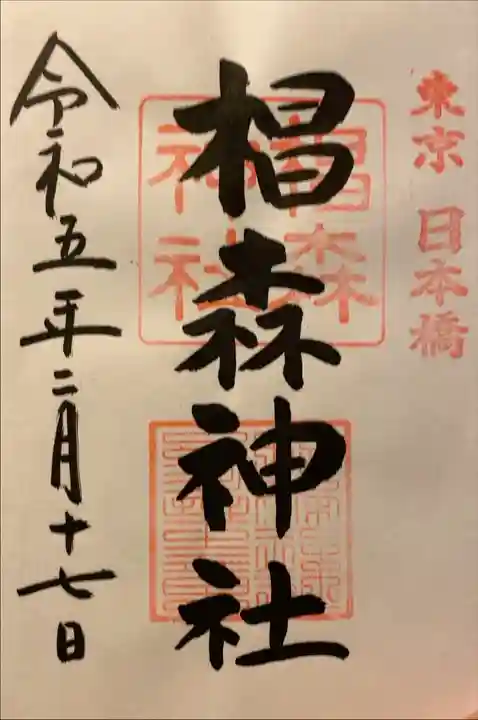 東京 日本橋
椙森神社
椙森
神社
令和五年二月十七日